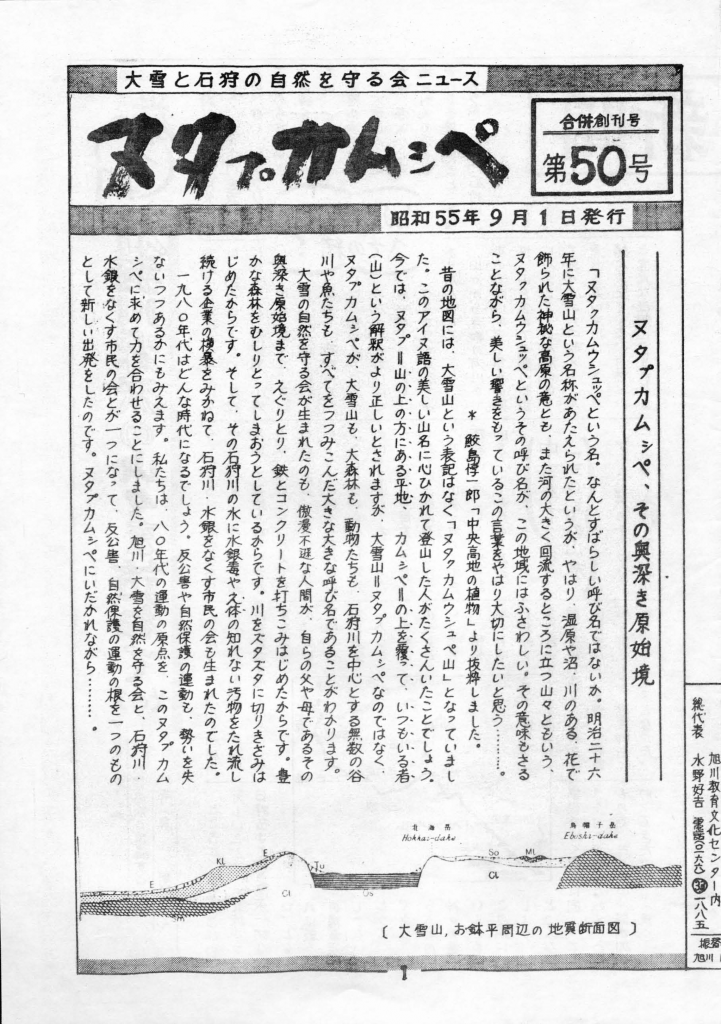 大雪と石狩の自然を守る会ニュース
ヌタプカムシペ
合併創刊号
第50号
昭和55年9月1日発行
ヌタプカムシペ、その奥深き原始境
「ヌタクカムウシュッペという名。なんとすばらしい呼び名ではないか。明治二十六
年に大雪山という名称があたえられたというが、やはり、湿原や沼、川のある、花で
飾られた神秘な高原の意とも、また河の大きく回流するところに立つ山々ともいう、
ヌタックカムウシュッペというその呼び名が、この地域にはふさわしい。その意味もさる
ことながら、美しい響きをもっているこの言葉をやはり大切にしたいと思う………。
* 鮫島惇一郎「中央高地の植物」より抜粋しました。
昔の地図には、大雪山という表記はなく「ヌタクカムウシュペ山」となっていまし
た。このアイヌ語の美しい山名に心ひかれて登山した人がたくさんいたことでしょう。
今では、ヌタプ=山の上の方にある平地、カムシペ=の上を覆って、いつもいる者
(山)という解釈がより正しいとされますが、大雪山=ヌタプカムシペなのではなく、
ヌタプカムシペが、大雪山も、大森林も、動物たちも、石狩川を中心とする無数の谷
川や魚たちも、すべてをつつみこんだ大きな大きな呼び名であることがわかります。
大雪の自然を守る会が生まれたのも、傲漫不遜な人間が、自らの父や母であるその
奥深き原始境まで、えぐりとり、鉄とコンクリートを打ちこみはじめたからです。豊
かな森林をむしりとってしまおうとしているからです。川をズタズタに切りきざみは
じめたからです。そして、その石狩川の水に水銀毒や得体の知れない汚物をたれ流し
続ける企業の横暴をみかねて、石狩川・水銀をなくす市民の会も生まれたのでした。
一九八〇年代はどんな時代になるでしょう。反公害や自然保護の運動も、勢いを失
ないつつあるかにもみえます。私たちは、八〇年代の運動の原点を、このヌタプカム
シペに求めて力を合わせることにしました。旭川・大雪を自然を守る会と、石狩川・
水銀をなくす市民の会とが一つになって、反公害、自然保護の運動の根を一つのもの
として新しい出発をしたのです。ヌタプカムシペにいだかれながら………。
北海岳
Hokkai-dake
烏帽子岳
Eboshi-dake
E
KL
E
Tu
So
ML
CL
Os
CL
Sm
〔大雪山,お鉢平周辺の地質断面図〕
1
旭川教育文化センター内
総代表 水野好吉 電話〇一六六
一八八五
振替
旭川